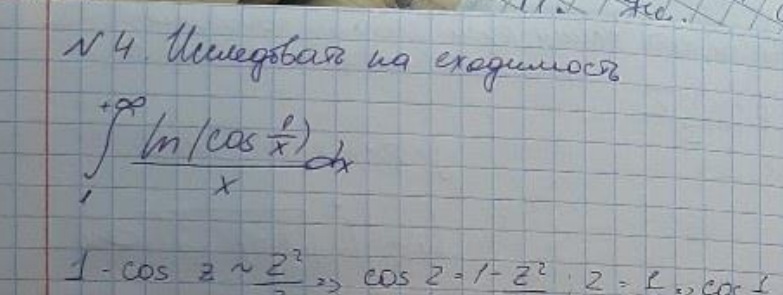 N 4. Исследовать на сходимость
+∞
∫ ln(cos 1/x) / x dx
1
1 - cos z ~ z² => cos z = 1 - z²